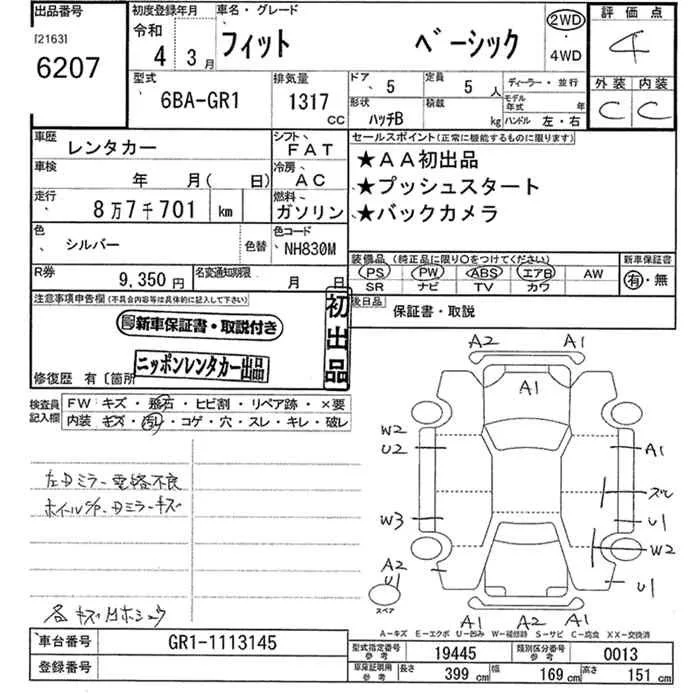 出品番号
[2163]
6207
初度登録年月
令和
4 3月
車名・グレード
フィット ベーシック
2WD
・
4WD
評価点
4
外装 内装
C C
型式
6BA-GR1
排気量
1317
CC
ドア、
5
定員
5 人
形状
ハッチB
積載
kg
ディーラー・並行
モデル
年式 年
ハンドル 左・右
車歴
レンタカー
シフト、
FAT
車検
年 月( 日)
冷房、
AC
走行
8万7千701 km
燃料
ガソリン
色
シルバー
色替
色コード
NH830M
R券
9,350円
名変通知期限
月 日
セールスポイント(正常に機能するものに限ります)
★AA初出品
★プッシュスタート
★バックカメラ
装備品 (純正品に限り○をつけてください)
PS PW ABS エアB AW
SR ナビ TV カワ
新車保証書
有・無
後日品
保証書・取説
注意事項申告欄(不具合内容等は具体的に記入して下さい)
新車保証書・取説付き
ニッポンレンタカー出品
初出品
修復歴 有〔箇所
検査員
記入欄
FW キズ・飛石・ヒビ割・リペア跡・×要
内装 キズ・汚レ・コゲ・穴・スレ・キレ・破レ
左Dミラー電格不良
ホイールC/P・Dミラーキズ
各キズ凹ホシュウ
A2 A1
A1
W2
U2
A1
スレ
W3
U1
W2
A2
U1
U1
スペア
A1 A2 A1
A-キズ E-エクボ U-凹み W-補修跡 S-サビ C-腐食 XX-交換済
車台番号
GR1-1113145
登録番号
型式指定番号
参考
19445
類別区分番号
参考
0013
車庫証明用
参考
長さ
399 cm
幅
169 cm
高さ
151 cm